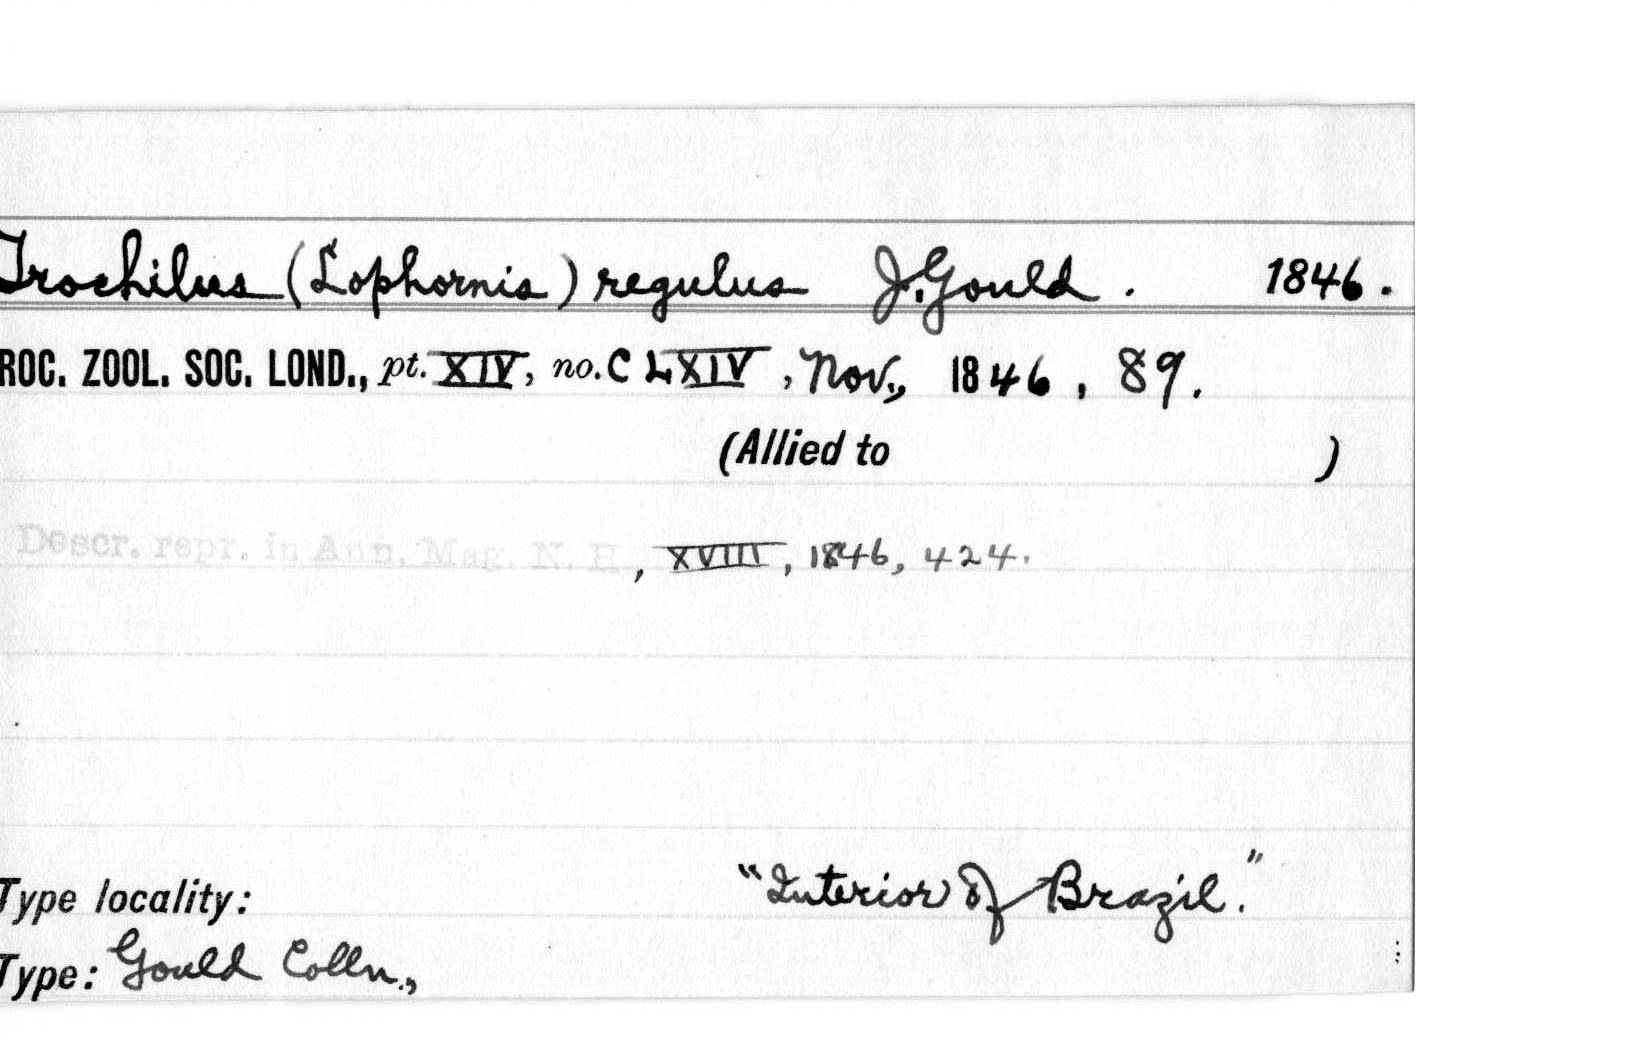 Trochilus (Lophornis) regulus J. Gould. 1846.
ROC. ZOOL. SOC. LOND., pt. XIV, no. CLXIV, Nov., 1846, 89.
(Allied to )
Descr. repr. in Ann. Mag. N. H., XVIII, 1846, 424.
Type locality: "Interior of Brazil."
Type: Gould Colln.,